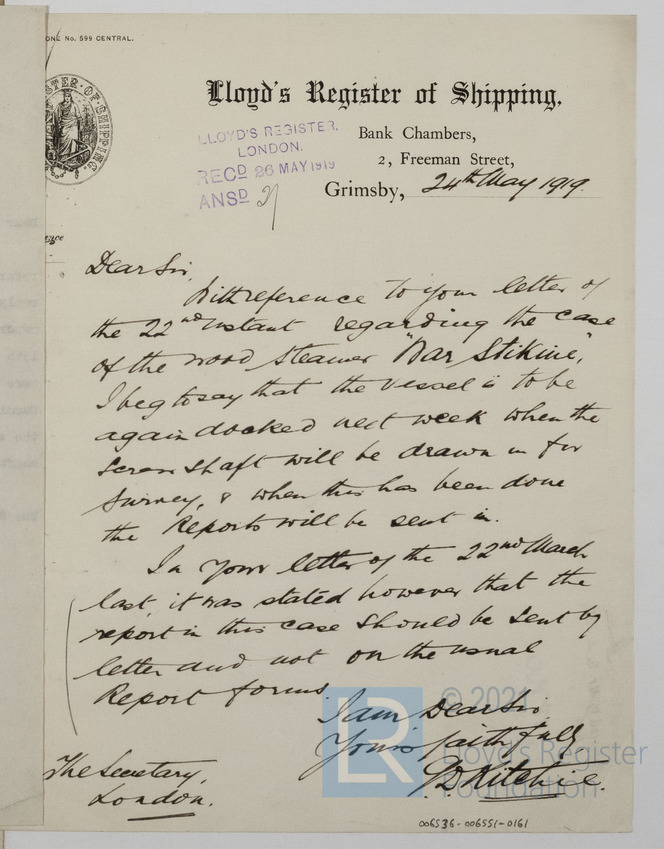 ONE No. 599 CENTRAL.
STER·OF·SHIPPING.
Lloyd's Register of Shipping,
Bank Chambers,
2, Freeman Street,
Grimsby, 24th May 1919.
LLOYD'S REGISTER.
LONDON.
RECD 26 MAY 1919
ANSD
Dear Sir,
With reference to your letter of
the 22nd instant regarding the case
of the wood steamer "War Stikine",
I beg to say that the vessel is to be
again docked next week when the
screw shaft will be drawn in for
survey, & when this has been done
the Reports will be sent in.
In your letter of the 22nd March
last, it was stated however that the
report in this case should be sent by
letter and not on the usual
Report forms.
I am Dear Sir
Yours faithfully
Ritchie.
The Secretary,
London.
LR
© 2021
Lloyd's Register
Foundation
006536-006551-0161